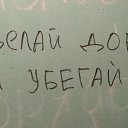 ДЕЛАЙ ДОБ
И УБЕГАЙ